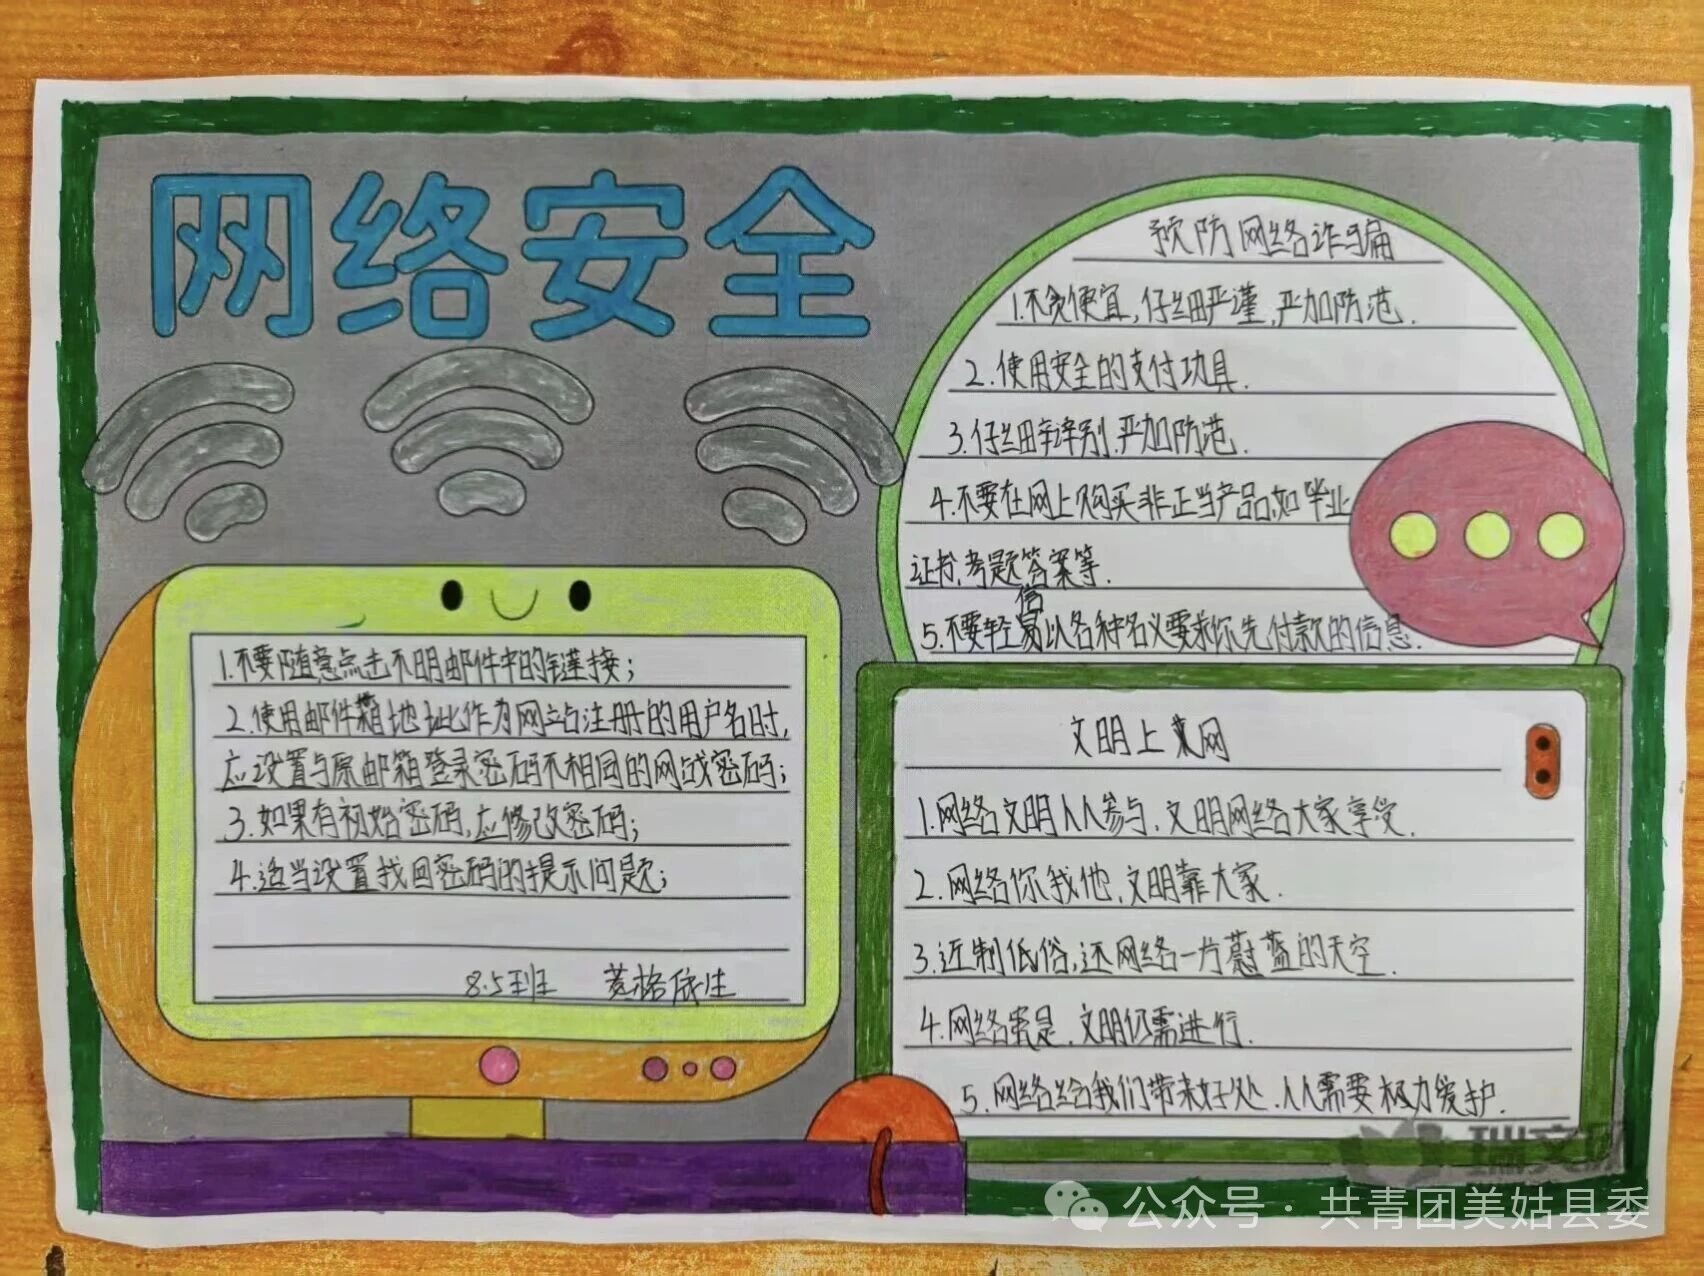 网络安全
1.不要随意点击不明邮件中的链接;
2.使用邮件箱地址作为网站注册的用户名时,
应设置与原邮箱登录密码不相同的网站密码;
3.如果有初始密码,应修改密码;
4.适当设置找回密码的提示问题;
8.5班
预防网络诈骗
1.不贪便宜,仔细严谨,严加防范.
2.使用安全的支付功具.
3.仔细辩别.严加防范.
4.不要在网上购买非正当产品,如毕业
证书、考题答案等.
5.不要轻易信以各种名义要求你先付款的信息.
文明上网
1.网络文明人人参与,文明网络大家享受.
2.网络你我他,文明靠大家.
3.还网络一方蔚蓝的天空.
4.网络,文明仍需进行.
5.网络给我们带来好处.人人需要极力爱护.
瑞文网
公众号·共青团美姑县委